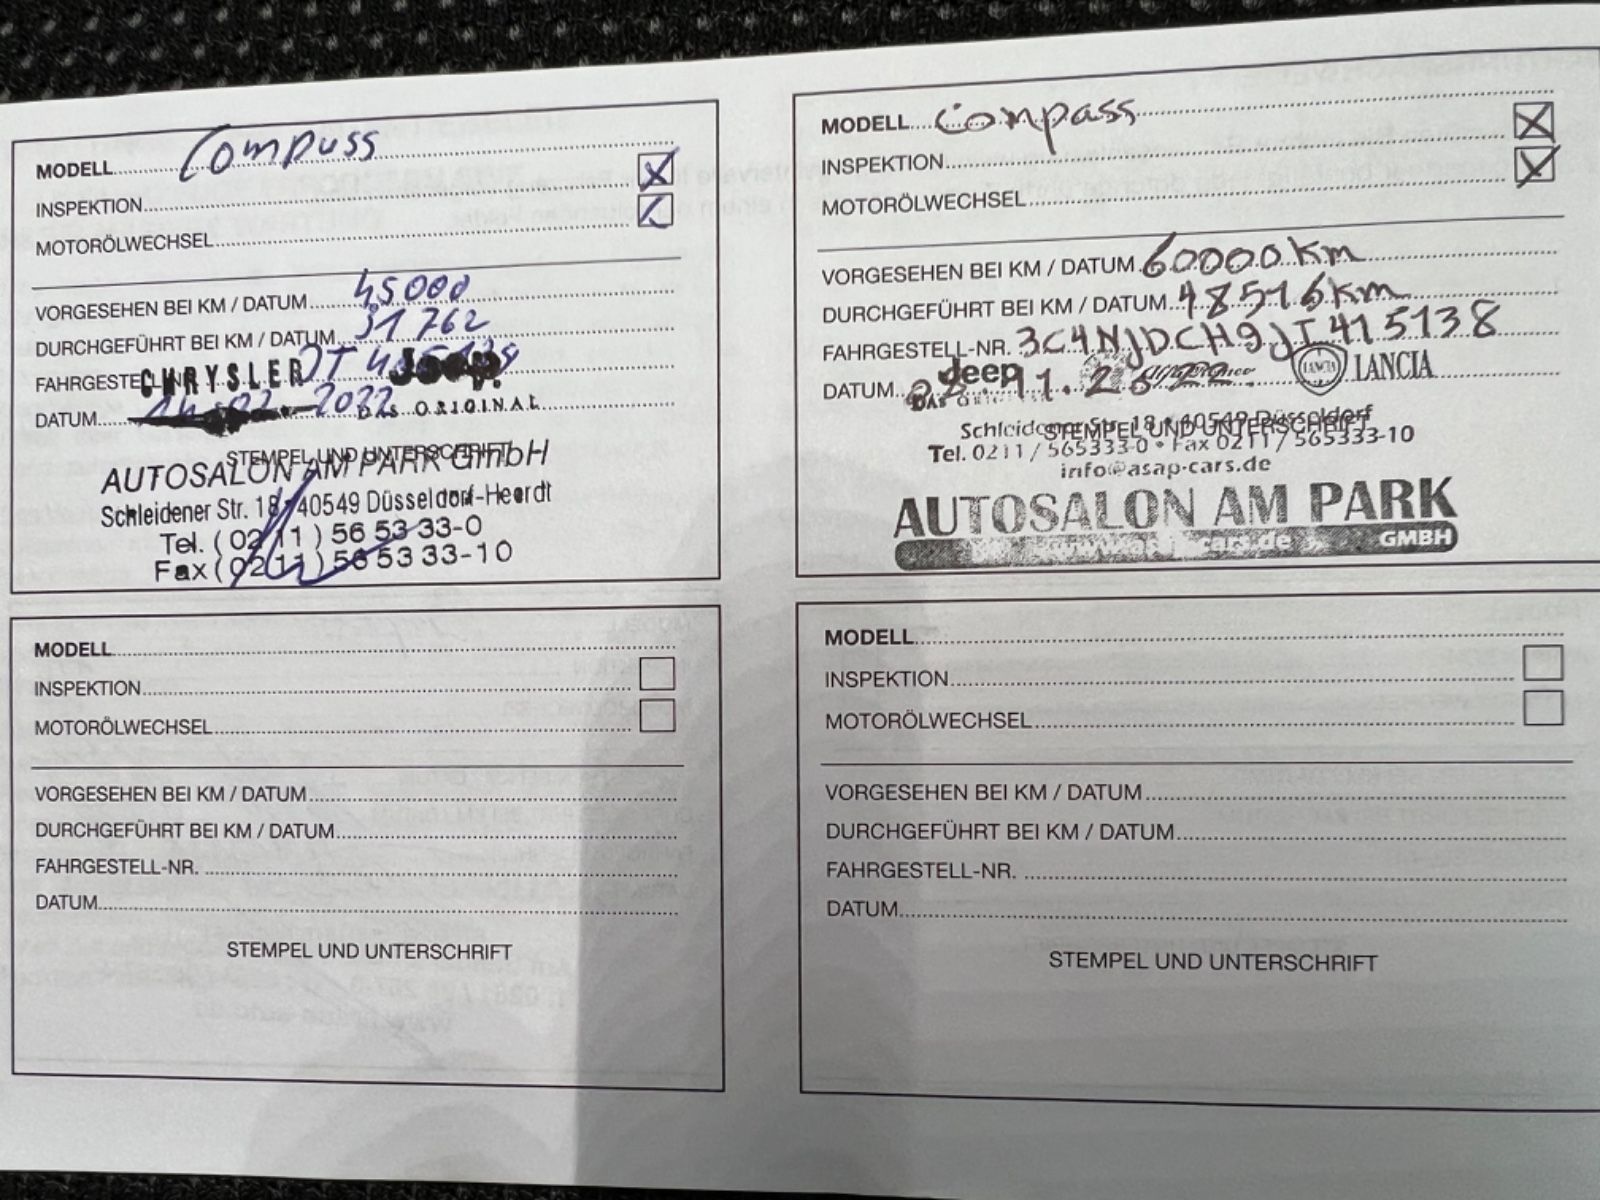 MODELL Compass
INSPEKTION
MOTORÖLWECHSEL
VORGESEHEN BEI KM / DATUM 45000
DURCHGEFÜHRT BEI KM / DATUM 31762
FAHRGESTELL-NR. JT
CHRYSLER Jeep
DATUM 2022
DAS ORIGINAL
STEMPEL UND UNTERSCHRIFT
AUTOSALON AM PARK GmbH
Schleidener Str. 18 · 40549 Düsseldorf-Heerdt
Tel. (02 11) 56 53 33-0
Fax (02 11) 56 53 33-10
MODELL Compass
INSPEKTION
MOTORÖLWECHSEL
VORGESEHEN BEI KM / DATUM 60000 Km
DURCHGEFÜHRT BEI KM / DATUM 48516 Km
FAHRGESTELL-NR. 3C4NJDCH9JT415138
DATUM 11.2022.
Jeep Alfa Romeo LANCIA LANCIA
DAS
Schleidener Str. 18 · 40549 Düsseldorf
STEMPEL UND UNTERSCHRIFT
Tel. 0211 / 565333-0 • Fax 0211 / 565333-10
info@asap-cars.de
AUTOSALON AM PARK
www.asap-cars.de GMBH
MODELL
INSPEKTION
MOTORÖLWECHSEL
VORGESEHEN BEI KM / DATUM
DURCHGEFÜHRT BEI KM / DATUM
FAHRGESTELL-NR.
DATUM
STEMPEL UND UNTERSCHRIFT
MODELL
INSPEKTION
MOTORÖLWECHSEL
VORGESEHEN BEI KM / DATUM
DURCHGEFÜHRT BEI KM / DATUM
FAHRGESTELL-NR.
DATUM
STEMPEL UND UNTERSCHRIFT